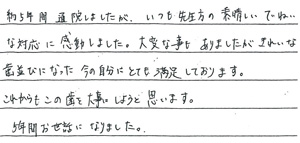 約5年間通院しましたが、いつも先生方の素晴しいていねい
な対応に感動しました。大変な事もありましたがきれいな
歯並びになった今の自分にとても満足しております。
これからもこの歯を大事にしようと思います。
5年間お世話になりました。